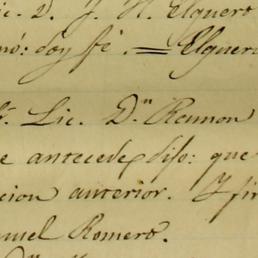 ic. D. J. N. Elguero
mó: doy fé. = Elguero
Lic. D.n Ramon
e antecede, dijo: que
cion anterior. I fir
nuel Romero.